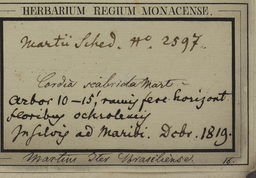 HERBARIUM REGIUM MONACENSE.
Martii Sched. No. 2597.
Cordia scabrida Mart.
Arbor 10-15', ramis fere horizont
floribus ochroleucis
In silvis ad Maribi. Dcbr. 1819.
Martius Iter Brasiliense.